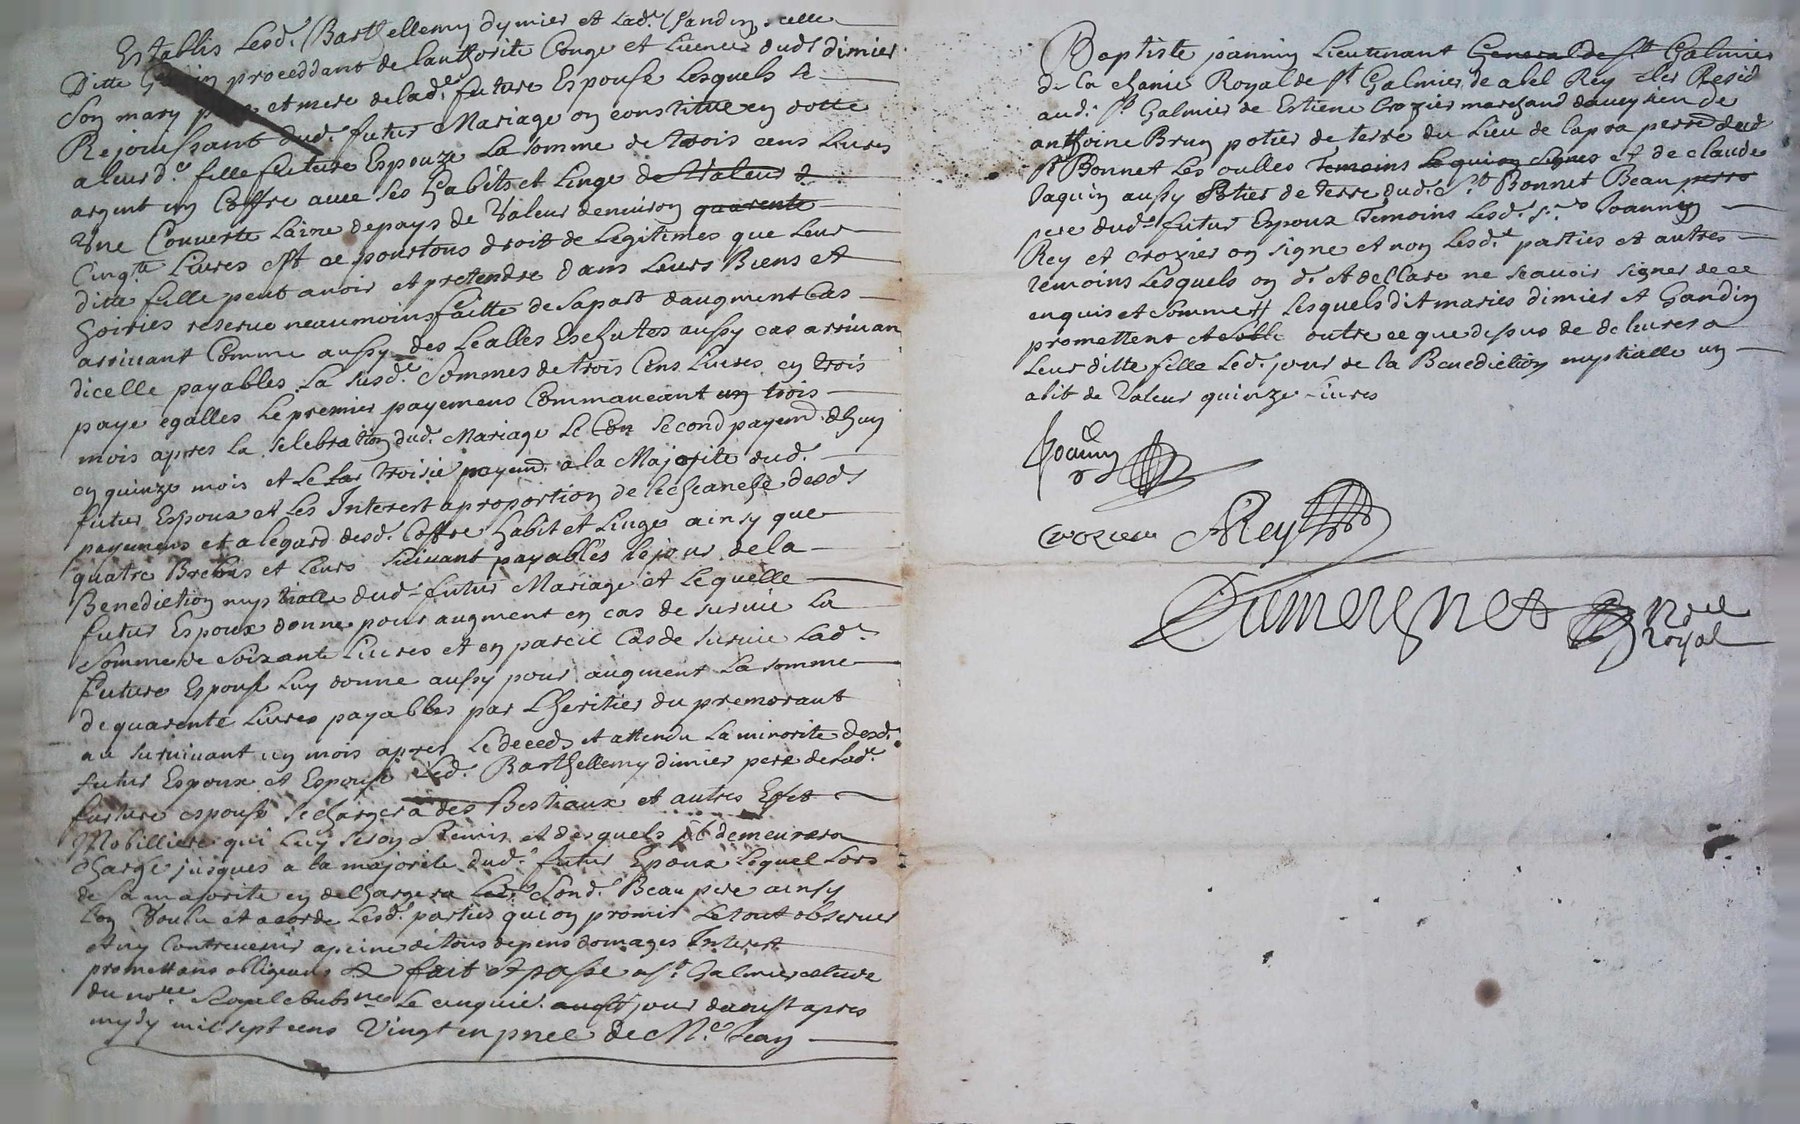 Establis Lesd. Barthellemy dymier et Lad.e Gandin celle
Ditte Gandin proceddant de lauthorite Conge et Licence dud. dimier
Son mary pere et mere delad.e future Espouse Lesquels se
Rejouissant dud. futur Mariage on constitue en dotte
a leurd.e fille future Espouze La somme de trois cens Livres
argent un Coffre avec ses habits et Linge de Valeur d
Une Couverte Laine depays de Valeur denviron quarente
Cinq.te Livres Et ce pourtous droit de Legitimes que Leur
ditte fille peut avoir et pretendre dans Leurs Biens et
hoiries reserve neaumoins faitte de sapart daugment Cas
arrivant Comme aussy des Lealles Eschutes aussy cas arrivan
dicelle payables La susd.e Sommes de trois Cens Livres en trois
paye egalles Le premier payemens Commancant un trois
mois apres La selebration dud. Mariage Le Con second payem. dhuy
en quinze mois et Le Las troisie payem. a la Majorite dud.
futur Espoux et Les Interest aproportion de lecheance desd.s
payemens et a legard desd. Coffre habit et Linge ainsy que
quatre Brebis et Leurs suivant payables le jour de la
Benediction nuptialle dud. futur Mariage et Lequelle
futur Espoux donne pour augment en cas de survie La
Somme de Soixante Livres et en pareil Cas de survie Lad.e
future Espouse Luy donne aussy pour augment La somme
de quarente Livres payables par Lheritier du premorant
au survivant un mois apres Le deceds et attendu La minorite desd.
futur Espoux et Espouse Led. Barthellemy dimier pere de Lad.e
future espouse se chargera des Bestiaux et autres Effet
Mobilliere qui Luy seron Remis et desquels il demeurera
charge jusques a la majorite dud. futur Epoux Lequel Lors
de sa majorite en dechargera Led. Sond. Beau pere ainsy
Lon Voulu et acorde Lesd. parties qui on promis Letout observer
et ny Contrevenir apeine de tous depens domages Interest
promettans obligeans & fait et passe a St Galmier estude
du no.re Royal et sub.ne Le cinquie. aust jour daoust apres
mydy mil sept cens Vingt en pnce de M.e Jean
Baptiste joannin Lieutenant General de St Galmier
de la chanie Royal de St Galmier de abel Rey clers Resid
aud. St Galmier de Estiene Crozier marchand daveysieu de
anthoine Brun potier de terre du Lieu de Lapra persse dud
St Bonnet Les oulles Temoins Lequien Signes et de claude
Jaquin aussy Potier de terre dud. St Bonnet Beau perro
pere dud. futur Espoux Temoins Lesd. s.rs Joannin
Rey et crozier on signe et non Lesd. parties et autres
temoins Lesquels on d. et dellare ne scavoir signer de ce
enquis et Somme # Lesquels dit maries dimier et Gandin
promettent et oblle outre ce que dessus de delivrer a
Leur ditte fille Led. jour de la Benediction nuptialle un
abit de Valeur quinze Livres
Joannin
Crozier ARey
Dumoignet No.re
Royal